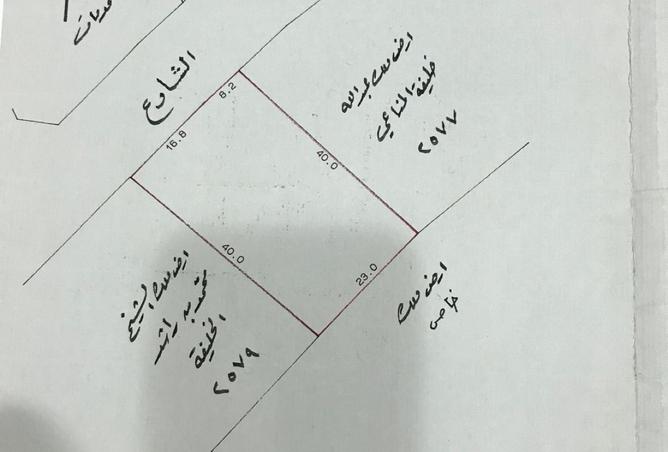 الشارع
8.2
16.8
40.0
ارض ملك عبدالله
خليفة المناعي
٢٥٧٧
40.0
23.0
ارض ملك الشيخ
محمد بن راشد
الخليفة
٢٥٧٩
ارض ملك
خاص